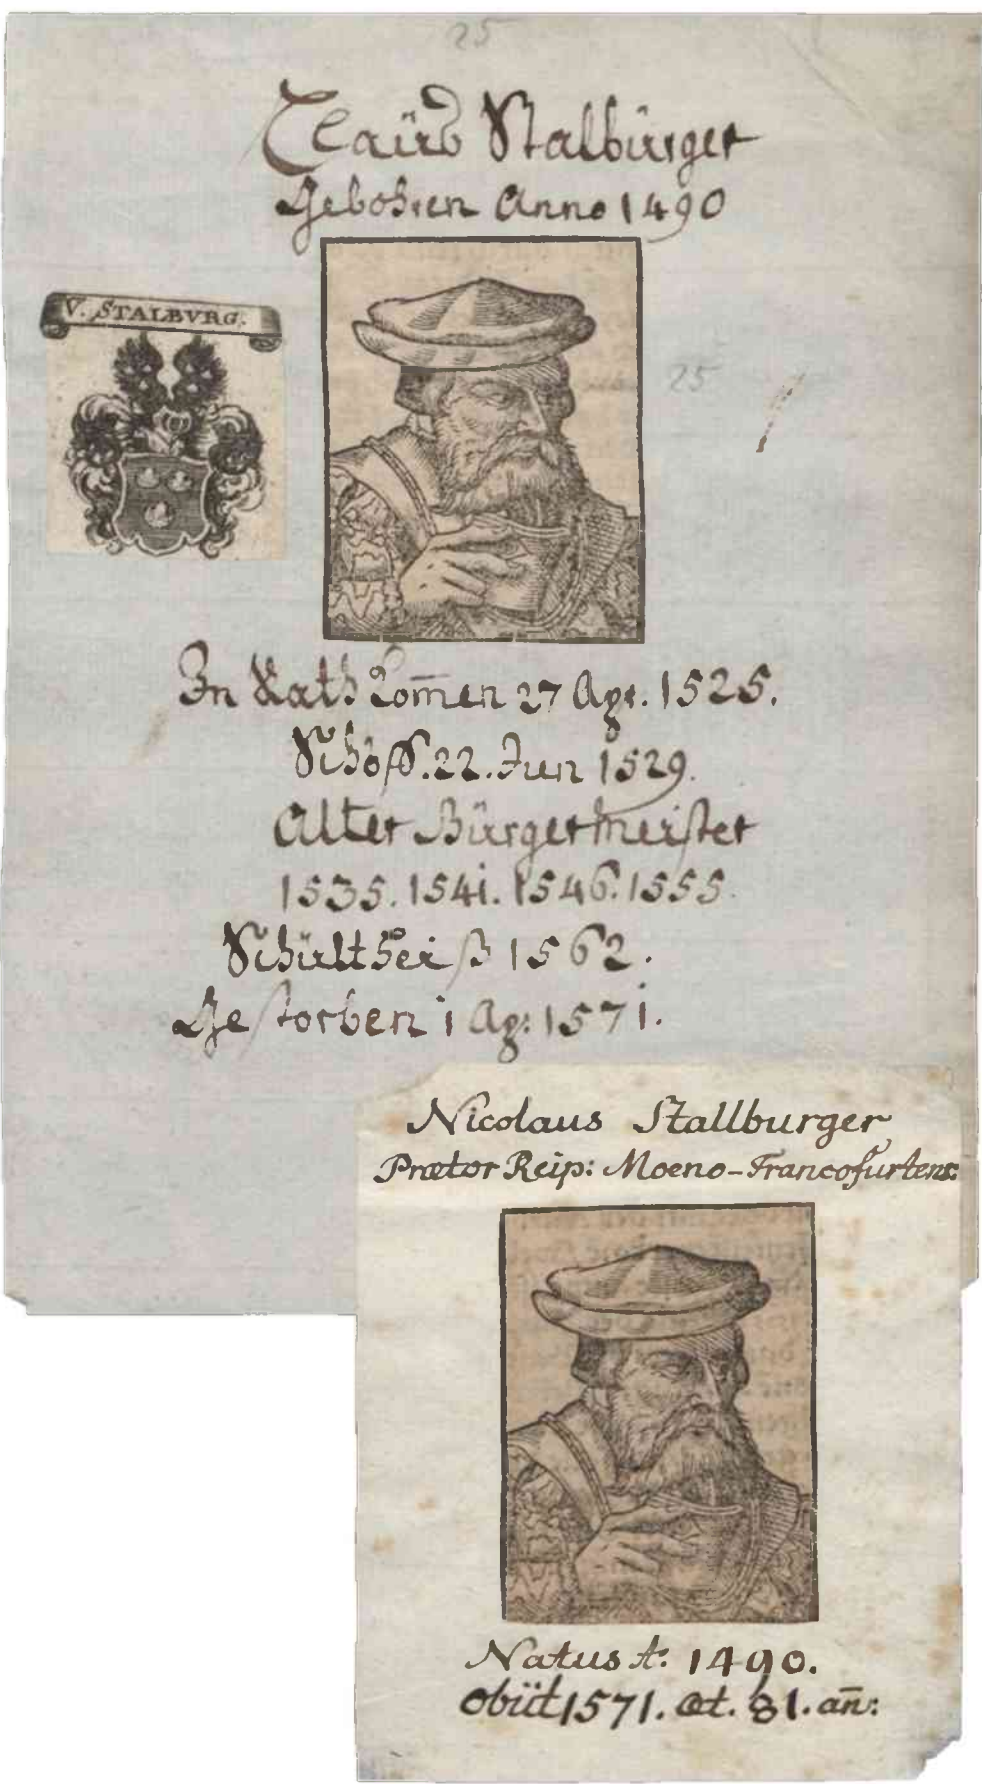 25
Claus Stalburger
Gebohren Anno 1490
V. STALBVRG.
25
In Rath kom̄en 27 Apr. 1525.
Schöff. 22. Jun 1529.
Alter Bürgermeister
1535. 1541. 1546. 1555.
Schultheiß 1562.
Gestorben 1 Ap: 1571.
Nicolaus Stallburger
Prætor Reip: Moeno-Francofurtens:
Natus A: 1490.
obiit 1571. æt. 81. an̄: